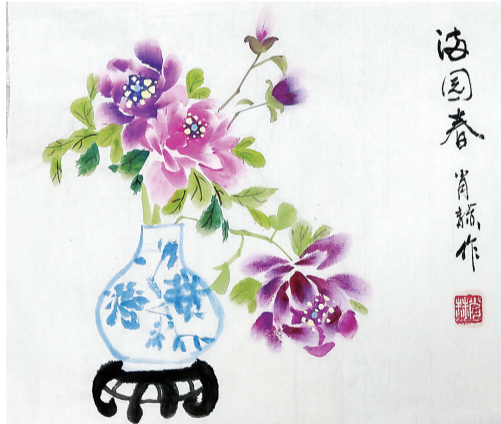 满园春
肖 作